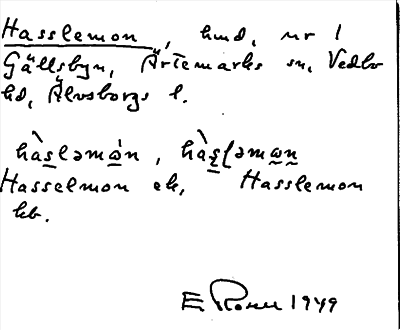 Hasslemon, hmd, nr 1
Gällsbyn, Ärtemarks sn, Vedbo
hd, Älvsborgs l.
hàsləmån, hàsləmån
Hasselmon ek, Hasslemon
kb.
E 1949